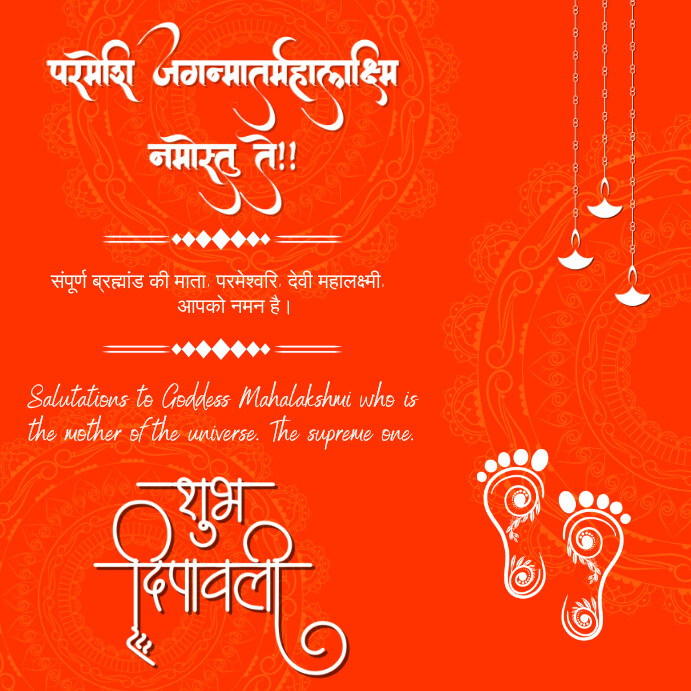 परमेशि जगन्मातर्महालक्ष्मि
नमोस्तु ते!!
संपूर्ण ब्रह्मांड की माता, परमेश्वरि, देवी महालक्ष्मी,
आपको नमन है।
Salutations to Goddess Mahalakshmi who is
the mother of the universe. The supreme one.
शुभ
दिपावली